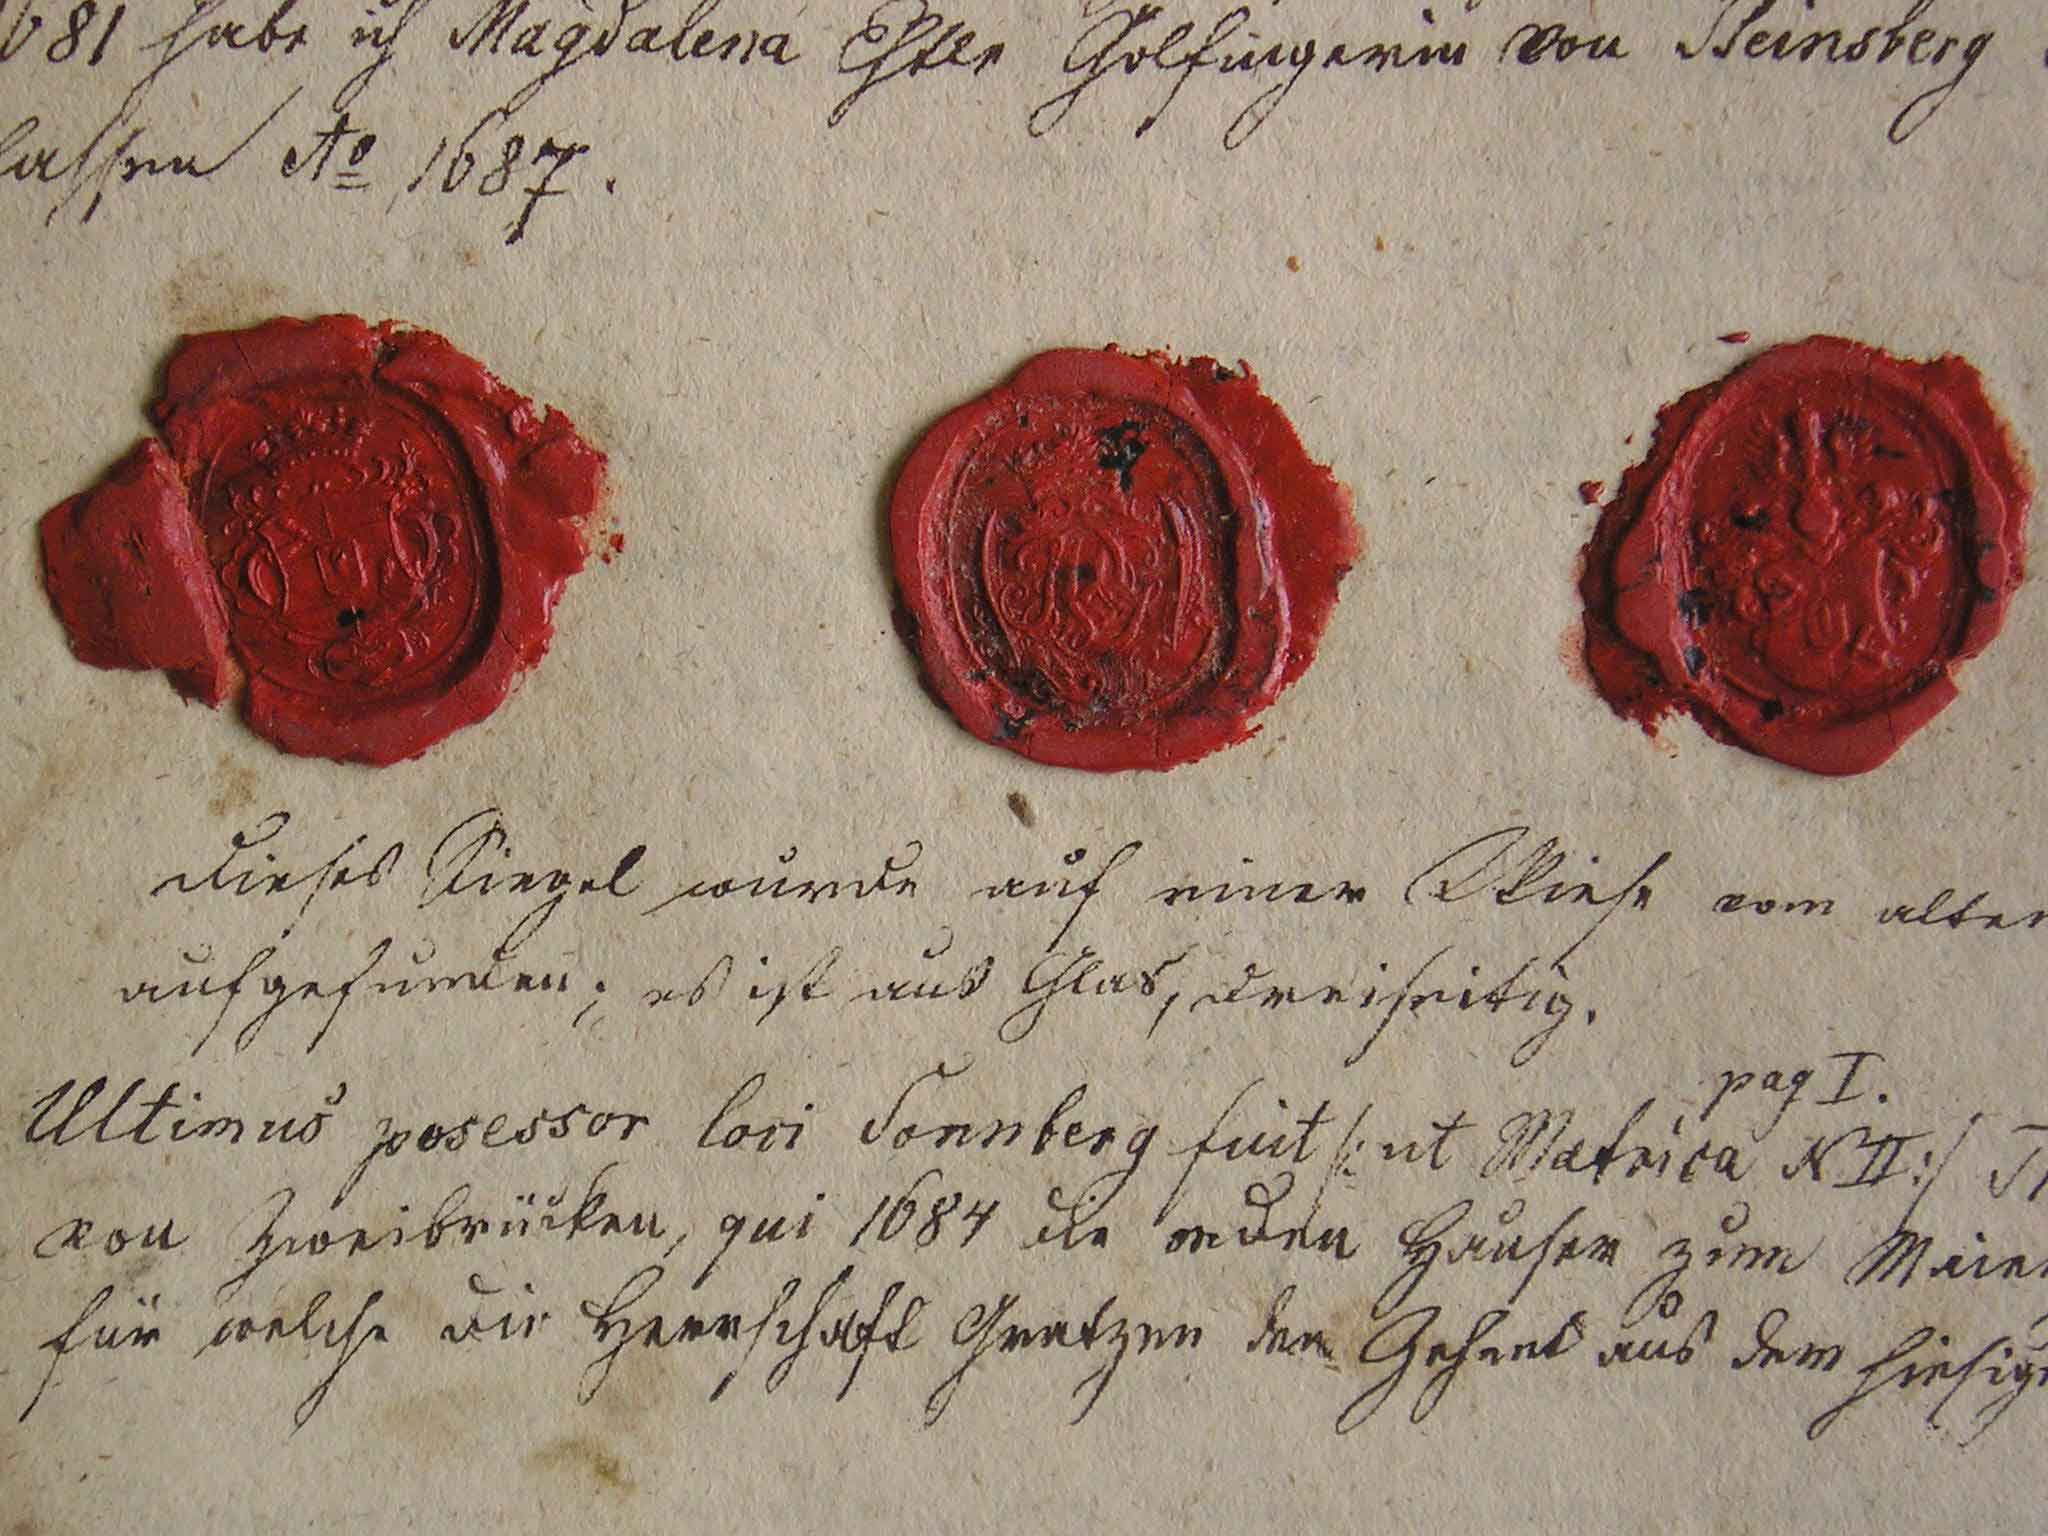 681 habe ich Magdalena Ester Golfingerin von Steinsberg
lassen Ao 1687.
dieses Siegel wurde auf einer Wiese vom alten
aufgefunden; es ist aus Glas, dreiseitig.
pag I.
Ultimus posessor loci Sonnberg fuit /: ut Matrica N II :/
von Zweibrücken, qui 1684 die öden Häuser zum Maier
für welche die Herrschaft Gratzen den Zehent aus dem hiesige